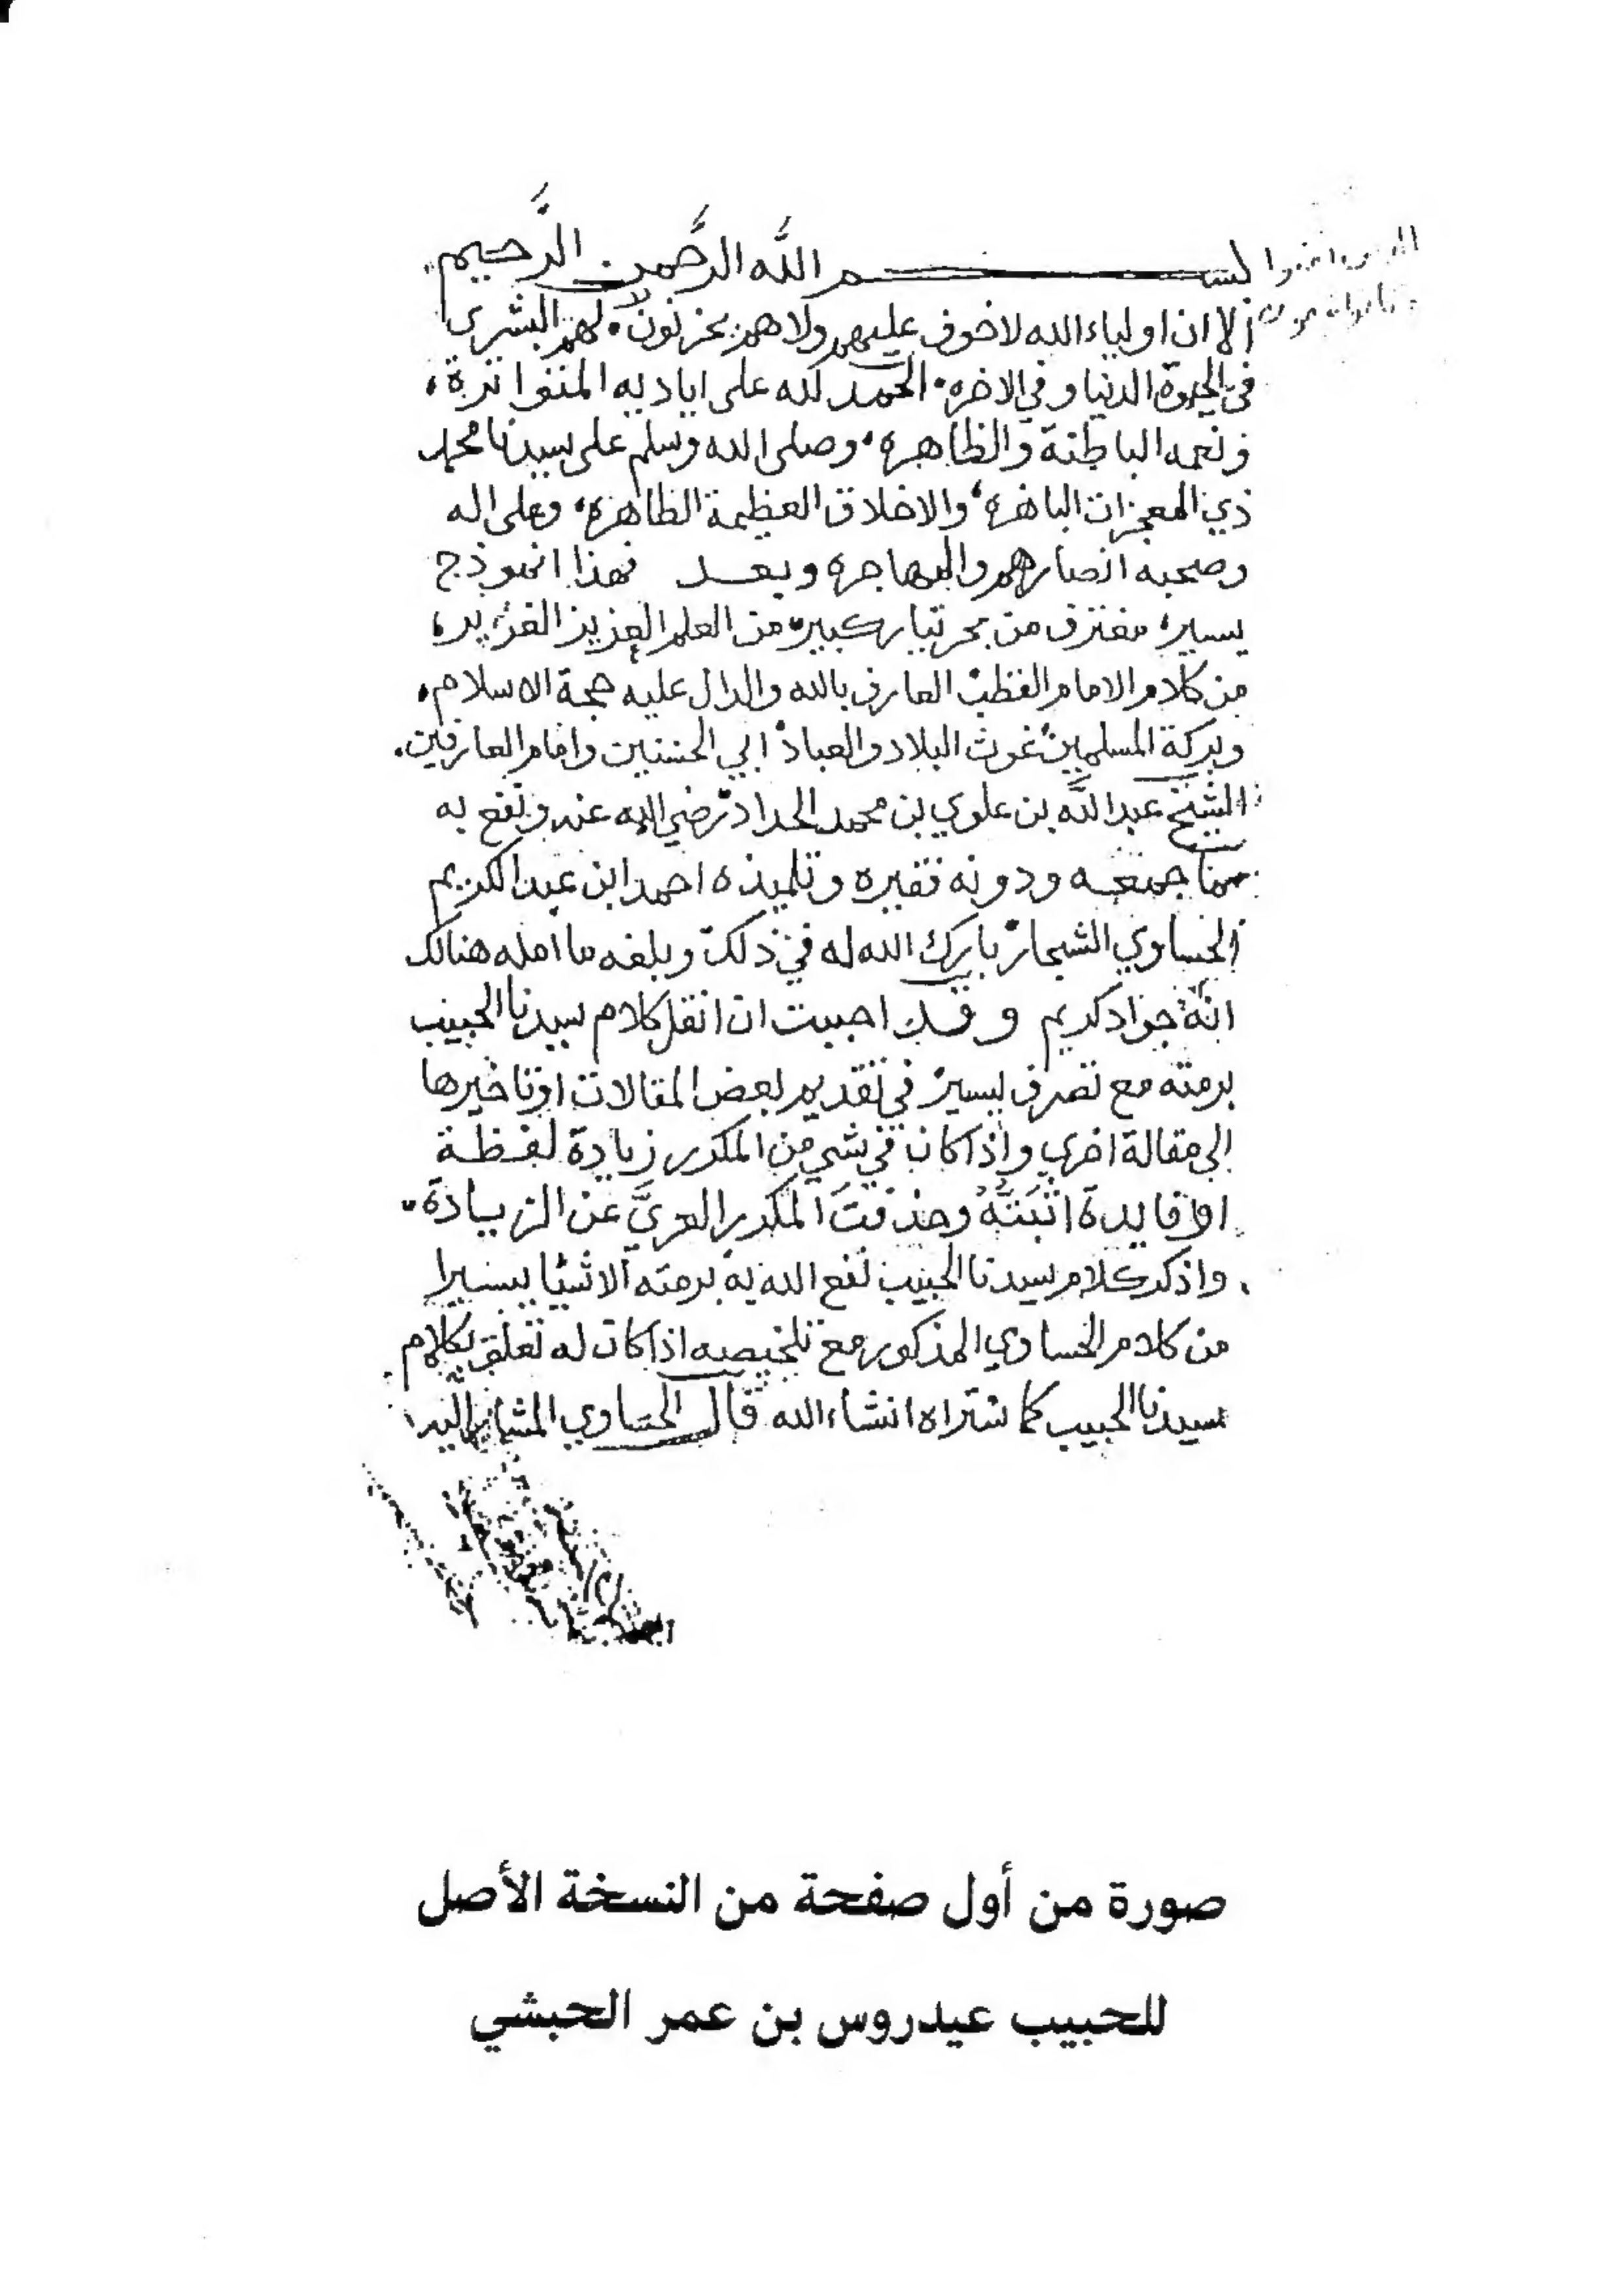 بسم الله الرحمن الرحيم
الا ان اولياء الله لا خوف عليهم ولا هم يحزنون لهم البشرى
في الحيوة الدنيا وفي الاخره الحمد لله على اياديه المتواترة،
ونعمه الباطنة والظاهره، وصلى الله وسلم على سيدنا محمد
ذي المعجزات الباهره، والاخلاق العظيمة الظاهره، وعلى اله
وصحبه انصارهم والمهاجره وبعد فهذا انموذج
يسير، مغترف من بحر تيار كبير، من العلم العزيز الغزير،
من كلام الامام القطب العارف بالله والدال عليه حجة الاسلام،
وبركة المسلمين غوث البلاد والعباد ابي الحسنين وامام العارفين.
الشيخ عبد الله بن علوي بن محمد الحداد رضي الله عنه ونفع به
مما جمعه ودونه فقيره وتلميذه احمد ابن عبد الكريم
الحساوي الشجار بارك الله له في ذلك وبلغه ما امله هنالك
انه جواد كريم وقد احببت ان انقل كلام سيدنا الحبيب
برمته مع تصرف يسير في تقديم بعض المقالات او تاخيرها
الى مقالة اخرى واذا كان في شي من المكرر زيادة لفظة
او فايدة اثبته وحذفت المكرر العري عن الزيادة
واذكر كلام سيدنا الحبيب نفع الله به برمته الا شيئا يسيرا
من كلام الحساوي المذكور مع تلخيصه اذا كان له تعلق بكلام
سيدنا الحبيب كما ستراه انشاء الله قال الحساوي المشار اليه
صورة من أول صفحة من النسخة الأصل
للحبيب عيدروس بن عمر الحبشي